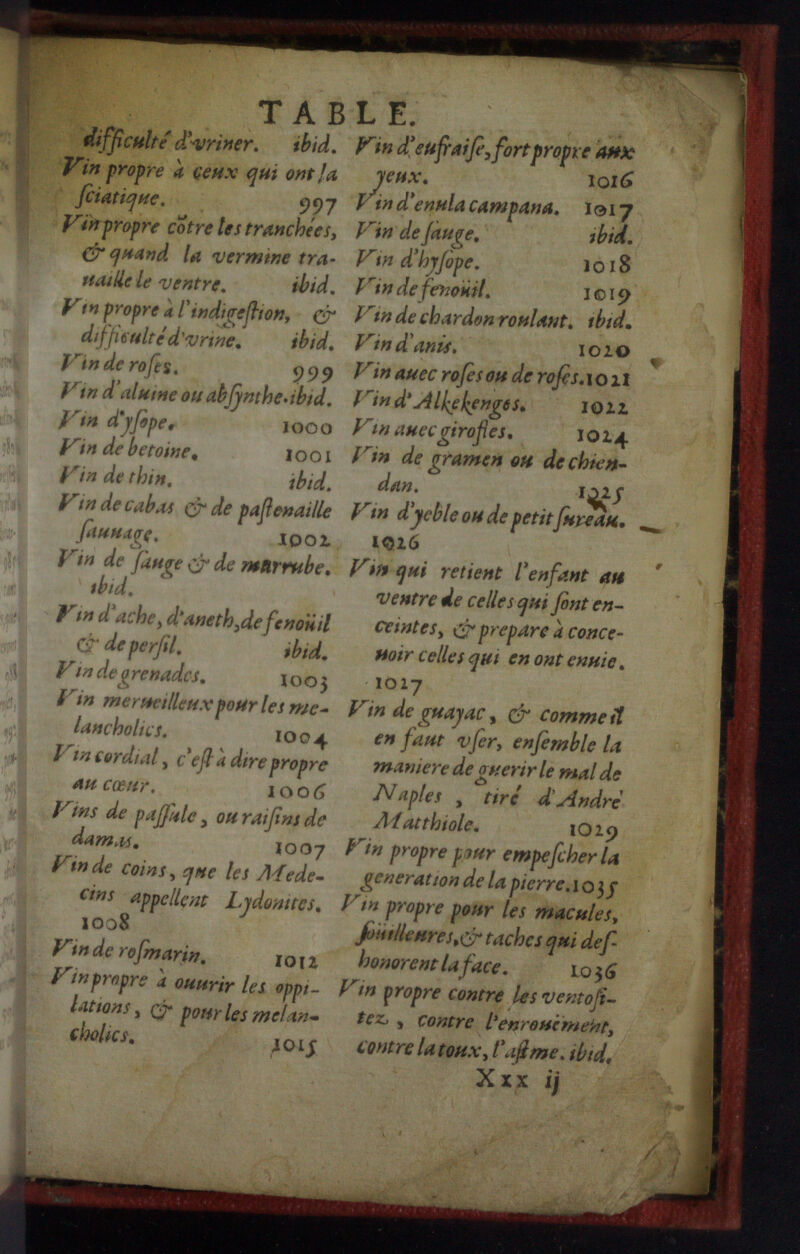 TABLE.
difficulté d'vriner. ibid.
Vin propre à ceux qui ont la
ſciatique. 997
Vin propre cõtre les tranchées,
& quand la vermine tra-
uaille le ventre. ibid.
Vin propre à l'indigeſtion, &
difficulté d'vrine. ibid.
Vin de roſes. 999
Vin d'aluine ou abſynthe. ibid.
Vin d'yſope. 1000
Vin de betoine. 1001
Vin de thin. ibid.
Vin de cabas & de paſtenaille
ſauuage. 1002
Vin de ſauge & de marrube.
ibid.
Vin d'ache, d'aneth, de fenoüil
& de perſil. ibid.
Vin de grenades. 1003
Vin merueilleux pour les me-
lancholics. 1004
Vin cordial, c'eſt à dire propre
au cœur. 1006
Vins de paſſule, ou raiſins de
damas. 1007
Vin de coins, que les Mede-
cins appellent Lydonites.
1008
Vin de roſmarin. 1012
Vin propre à ouurir les oppi-
lations, & pour les melan-
cholics. 1015
Vin d'eufraiſe, fort propre aux
yeux. 1016
Vin d'enula campana. 1017
Vin de ſauge. ibid.
Vin d'hyſope. 1018
Vin de fenoüil. 1019
Vin de chardon roulant. ibid.
Vin d'anis. 1020
Vin auec roſes ou de roſes. 1021
Vin d'Alkekenges. 1022
Vin auec girofles. 1024
Vin de gramen ou de chien-
dan. 1025
Vin d'yeble ou de petit ſureau.
1026
Vin qui retient l'enfant au
ventre de celles qui ſont en-
ceintes, & prepare à conce-
uoir celles qui en ont enuie.
1027
Vin de guayac, & comme il
en faut vſer, enſemble la
maniere de guerir le mal de
Naples, tiré d'André
Matthiole. 1029
Vin propre pour empeſcher la
generation de la pierre. 1035
Vin propre pour les macules,
ſoüilleures, & taches qui deſ-
honorent la face. 1036
Vin propre contre les ventoſi-
tez, contre l'enroüement,
contre la toux, l'aſtme. ibid.
Xxx ij